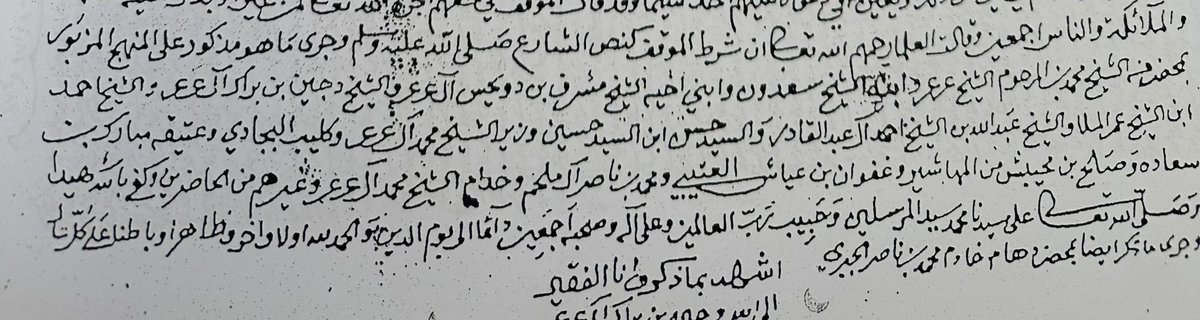 والملائكة والناس اجمعين وقالت العلماء رحمهم الله تعالى ان شرط الموقف كنص الشارع صلى الله عليه وسلم وجرى ما هو مذكور على المنهج المزبور
بمحضر من الشيخ محمد بن المرحوم الشيخ عرعر وابنه الشيخ سعدون وابني اخيه الشيخ مشرف بن دويحس آل عرعر والشيخ دجين بن براك آل عرعر والشيخ احمد
ابن الشيخ عمر الملا والشيخ عبدالله بن الشيخ احمد آل عبدالقادر والسيد حسن ابن السيد حسين وزير الشيخ محمد آل عرعر وكليب البجادي وعتيقه مبارك بن
سعاده وصالح بن محيبش من المهاشير وغفوان بن عياش العتيبي ومحمد بن ناصر آل ملحم وخدام الشيخ محمد آل عرعر وغيرهم من الحاضرين وكفى بالله شهيدا
وصلى الله تعالى على سيدنا محمد سيد المرسلين وحبيب رب العالمين وعلى آله وصحبه اجمعين دائما الى يوم الدين والحمد لله اولا واخر وظاهرا وباطنا على كل
وجرى ما ذكر ايضا بمحضر دهام خادم محمد بن ناصر الجبري
اشهد بما ذكر وانا الفقير
الى الله دجين بن براك آل عرعر